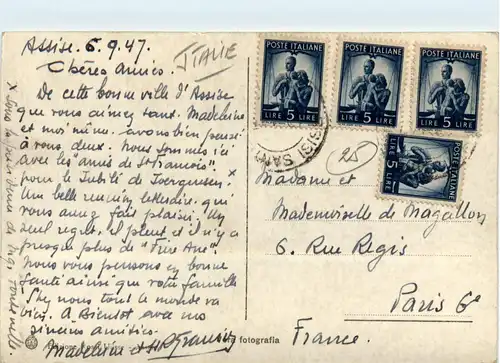 Assise. 6.9.47.
ITALIE
Chères amies.
De cette bonne ville d'Assise
que vous aimez tant. Madeleine
et moi même avons bien pensé
à vous deux. Nous sommes ici
avec les "amis de St François"
pour le Jubilé de Joergensen. x
Une belle réunion littéraire qui
vous aurez fait plaisir. Un
seul regret. il pleut et il n'y a
presque plus de
Nous vous pensons en bonne
santé ainsi que votre famille
Chez nous tout le monde va
bien. A Bientôt avec nos
amitiés.
Madeleine et
POSTE ITALIANE
LIRE 5 LIRE
POSTE ITALIANE
LIRE 5 LIRE
POSTE ITALIANE
LIRE 5 LIRE
POSTE ITALIANE
LIRE 5 LIRE
25
Madame et
Mademoiselle de Magallon
6. Rue Régis
Paris 6e
France.
fotografia